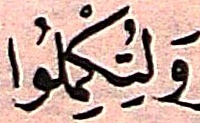 وَلِتُكْمِلُوا